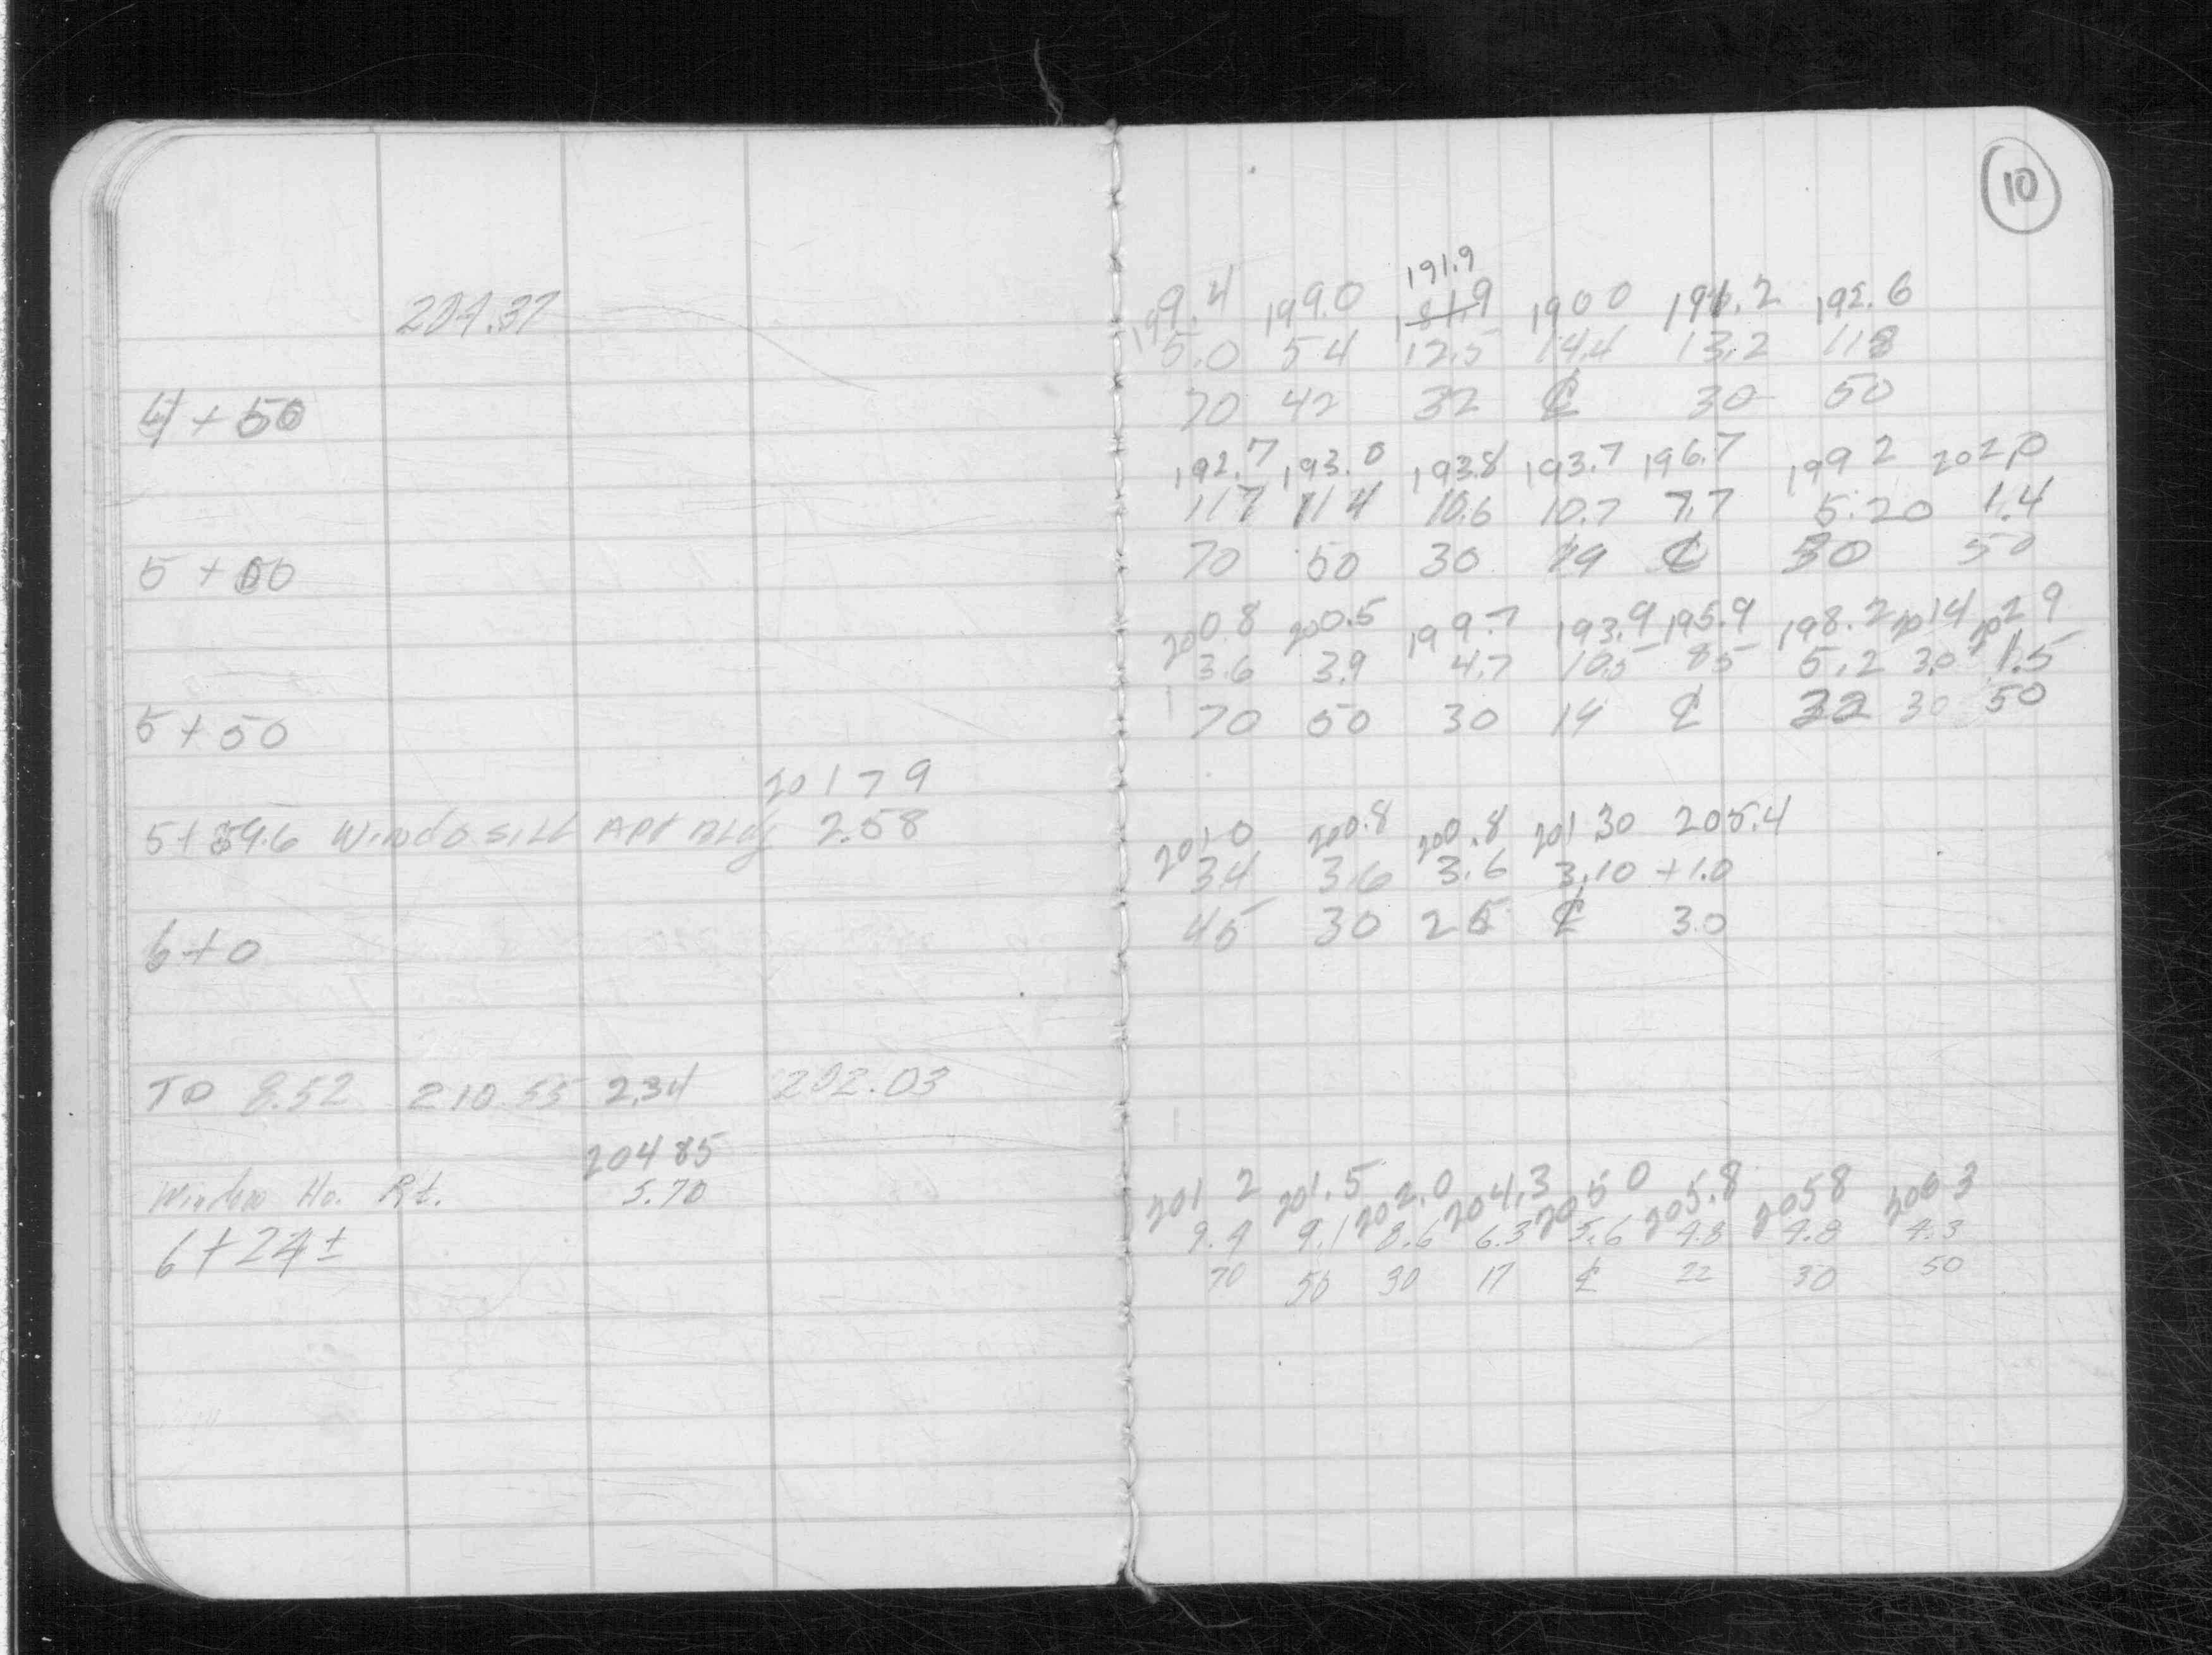 10
191.9
204.37 199.4 199.0 181.9 190 0 191.2 192.6
5.0 5 4 12.5 14.4 13.2 11 8
4 + 50 70 42 32 ℄ 30 50
192.7 193.0 193.8 193.7 196.7 199 2 202 0
11 7 11 4 10.6 10.7 7.7 5.20 1.4
5 + 00 70 50 30 29 ℄ 30 50
200.8 200.5 199.7 193.9 195.9 198.2 201 4 202 9
3.6 3.9 4.7 10.5 8 5 5.2 3.0 1.5
5 + 50 70 50 30 14 ℄ 22 30 50
201 7 9
5 + 59.6 Windo sill Apt Bldg 2.58 201 0 200.8 200.8 201 30 205.4
3 4 3.6 3.6 3.10 +1.0
6 + 0 45 30 25 ℄ 3.0
TP 8.52 210 55 2.34 202.03
204 85
Window Ho. Rt. 5.70 201 2 201.5 202.0 204.3 205 0 205.8 205 8 206 3
6 + 24 ± 9.4 9.1 8.6 6.3 5.6 4.8 4.8 4.3
70 50 30 17 ℄ 22 30 50